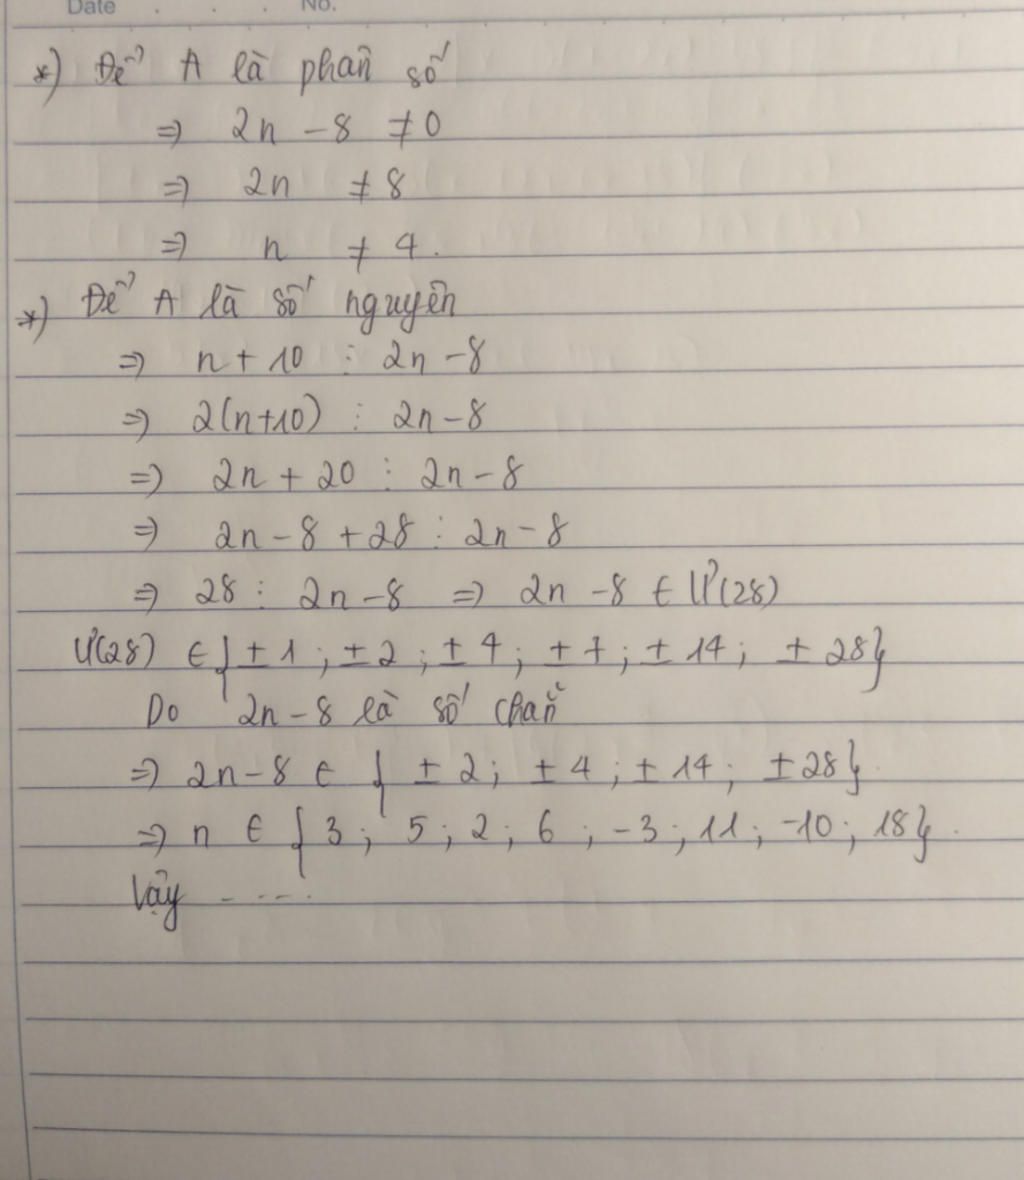 Date . . . No.
*) Để A là phân số
=> 2n - 8 ≠ 0
=> 2n ≠ 8
=> n ≠ 4.
*) Để A là số nguyên
=> n + 10 ⋮ 2n - 8
=> 2(n+10) ⋮ 2n - 8
=> 2n + 20 ⋮ 2n - 8
=> 2n - 8 + 28 ⋮ 2n - 8
=> 28 ⋮ 2n - 8 => 2n - 8 ∈ Ư(28)
Ư(28) ∈ { ± 1 ; ± 2 ; ± 4 ; ± 7 ; ± 14 ; ± 28}
Do 2n - 8 là số chẵn
=> 2n - 8 ∈ { ± 2 ; ± 4 ; ± 14 ; ± 28}.
=> n ∈ { 3 ; 5 ; 2 ; 6 ; -3 ; 11 ; -10 ; 18}.
Vậy .....